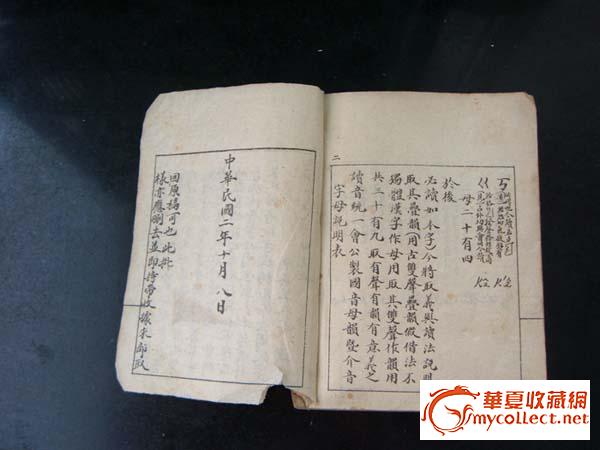 樣亦應刪去並即持帶收據來部取
回原稿可也此批
中華民國二年十月八日
二
字母說明表
讀音統一會公製國音母韻暨介音
共三十有九取有聲有韻有意義之
獨體漢字作母用取其雙聲作韻用
取其疊韻用古雙聲疊韻假借法不
必讀如本字)今將取義與讀法說明
於後
母二十有四
ㄍ
ㄎ
華夏收藏網
mycollect.net